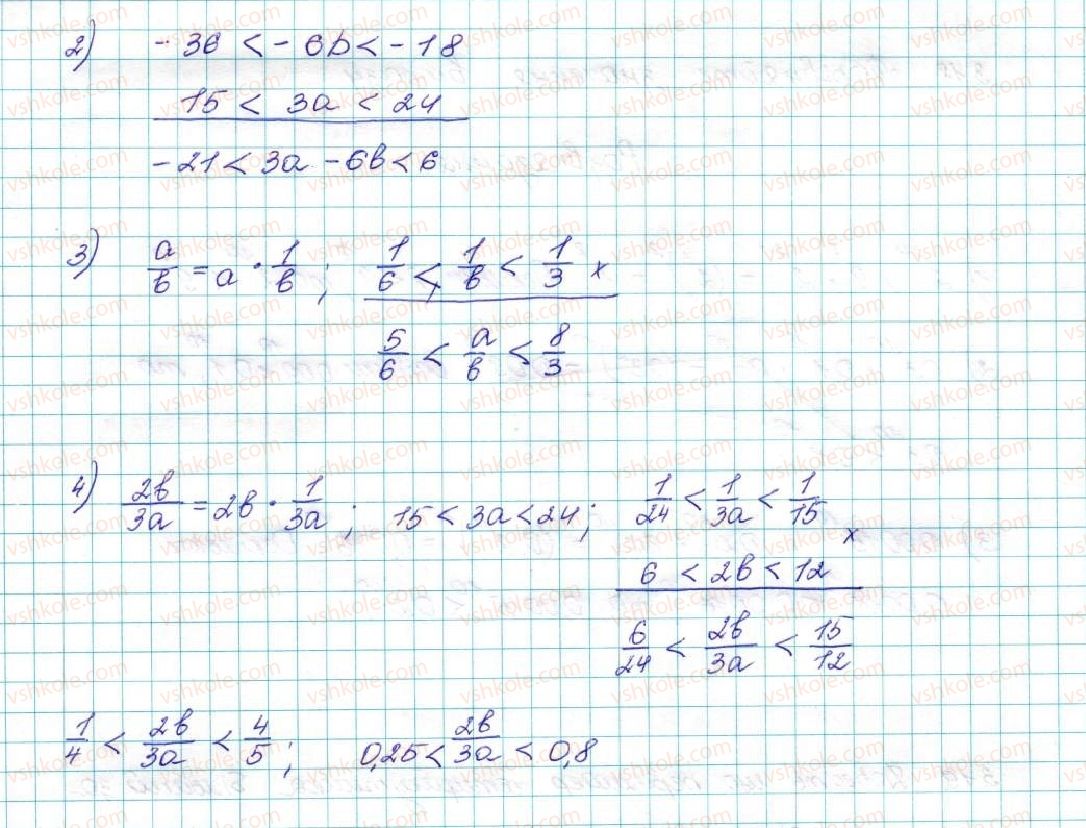 2) -36 < -6b < -18
15 < 3a < 24
-21 < 3a - 6b < 6
3) a/b = a · 1/b ; 1/6 < 1/b < 1/3 x
5/6 < a/b < 8/3
4) 2b/3a = 2b · 1/3a ; 15 < 3a < 24 ; 1/24 < 1/3a < 1/15 x
6 < 2b < 12
6/24 < 2b/3a < 15/12
1/4 < 2b/3a < 4/5 ; 0,25 < 2b/3a < 0,8
vshkole.com